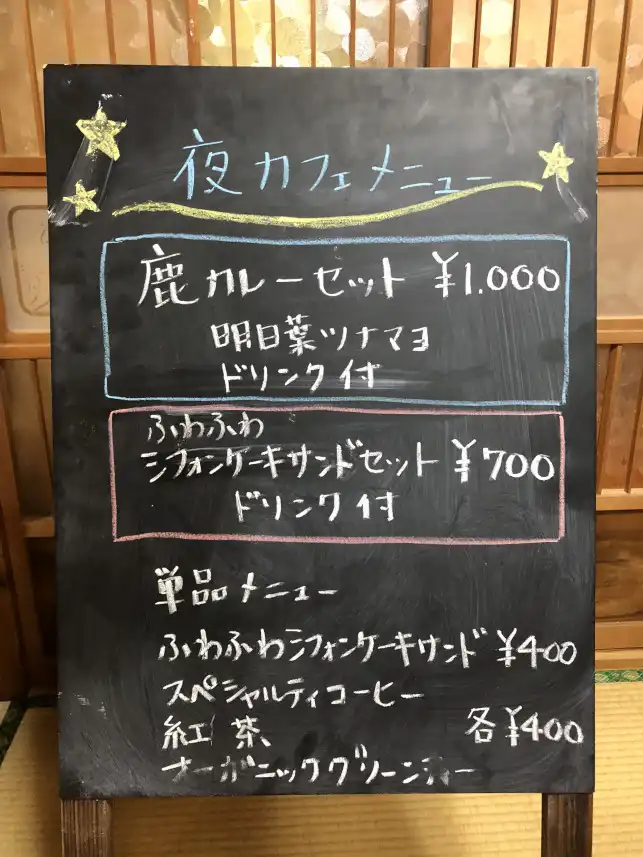 夜カフェメニュー
鹿カレーセット ¥1.000
明日葉ツナマヨ
ドリンク付
ふわふわ
シフォンケーキサンドセット ¥700
ドリンク付
単品メニュー
ふわふわシフォンケーキサンド ¥400
スペシャルティコーヒー
紅茶 各¥400
オーガニックグリーンティー